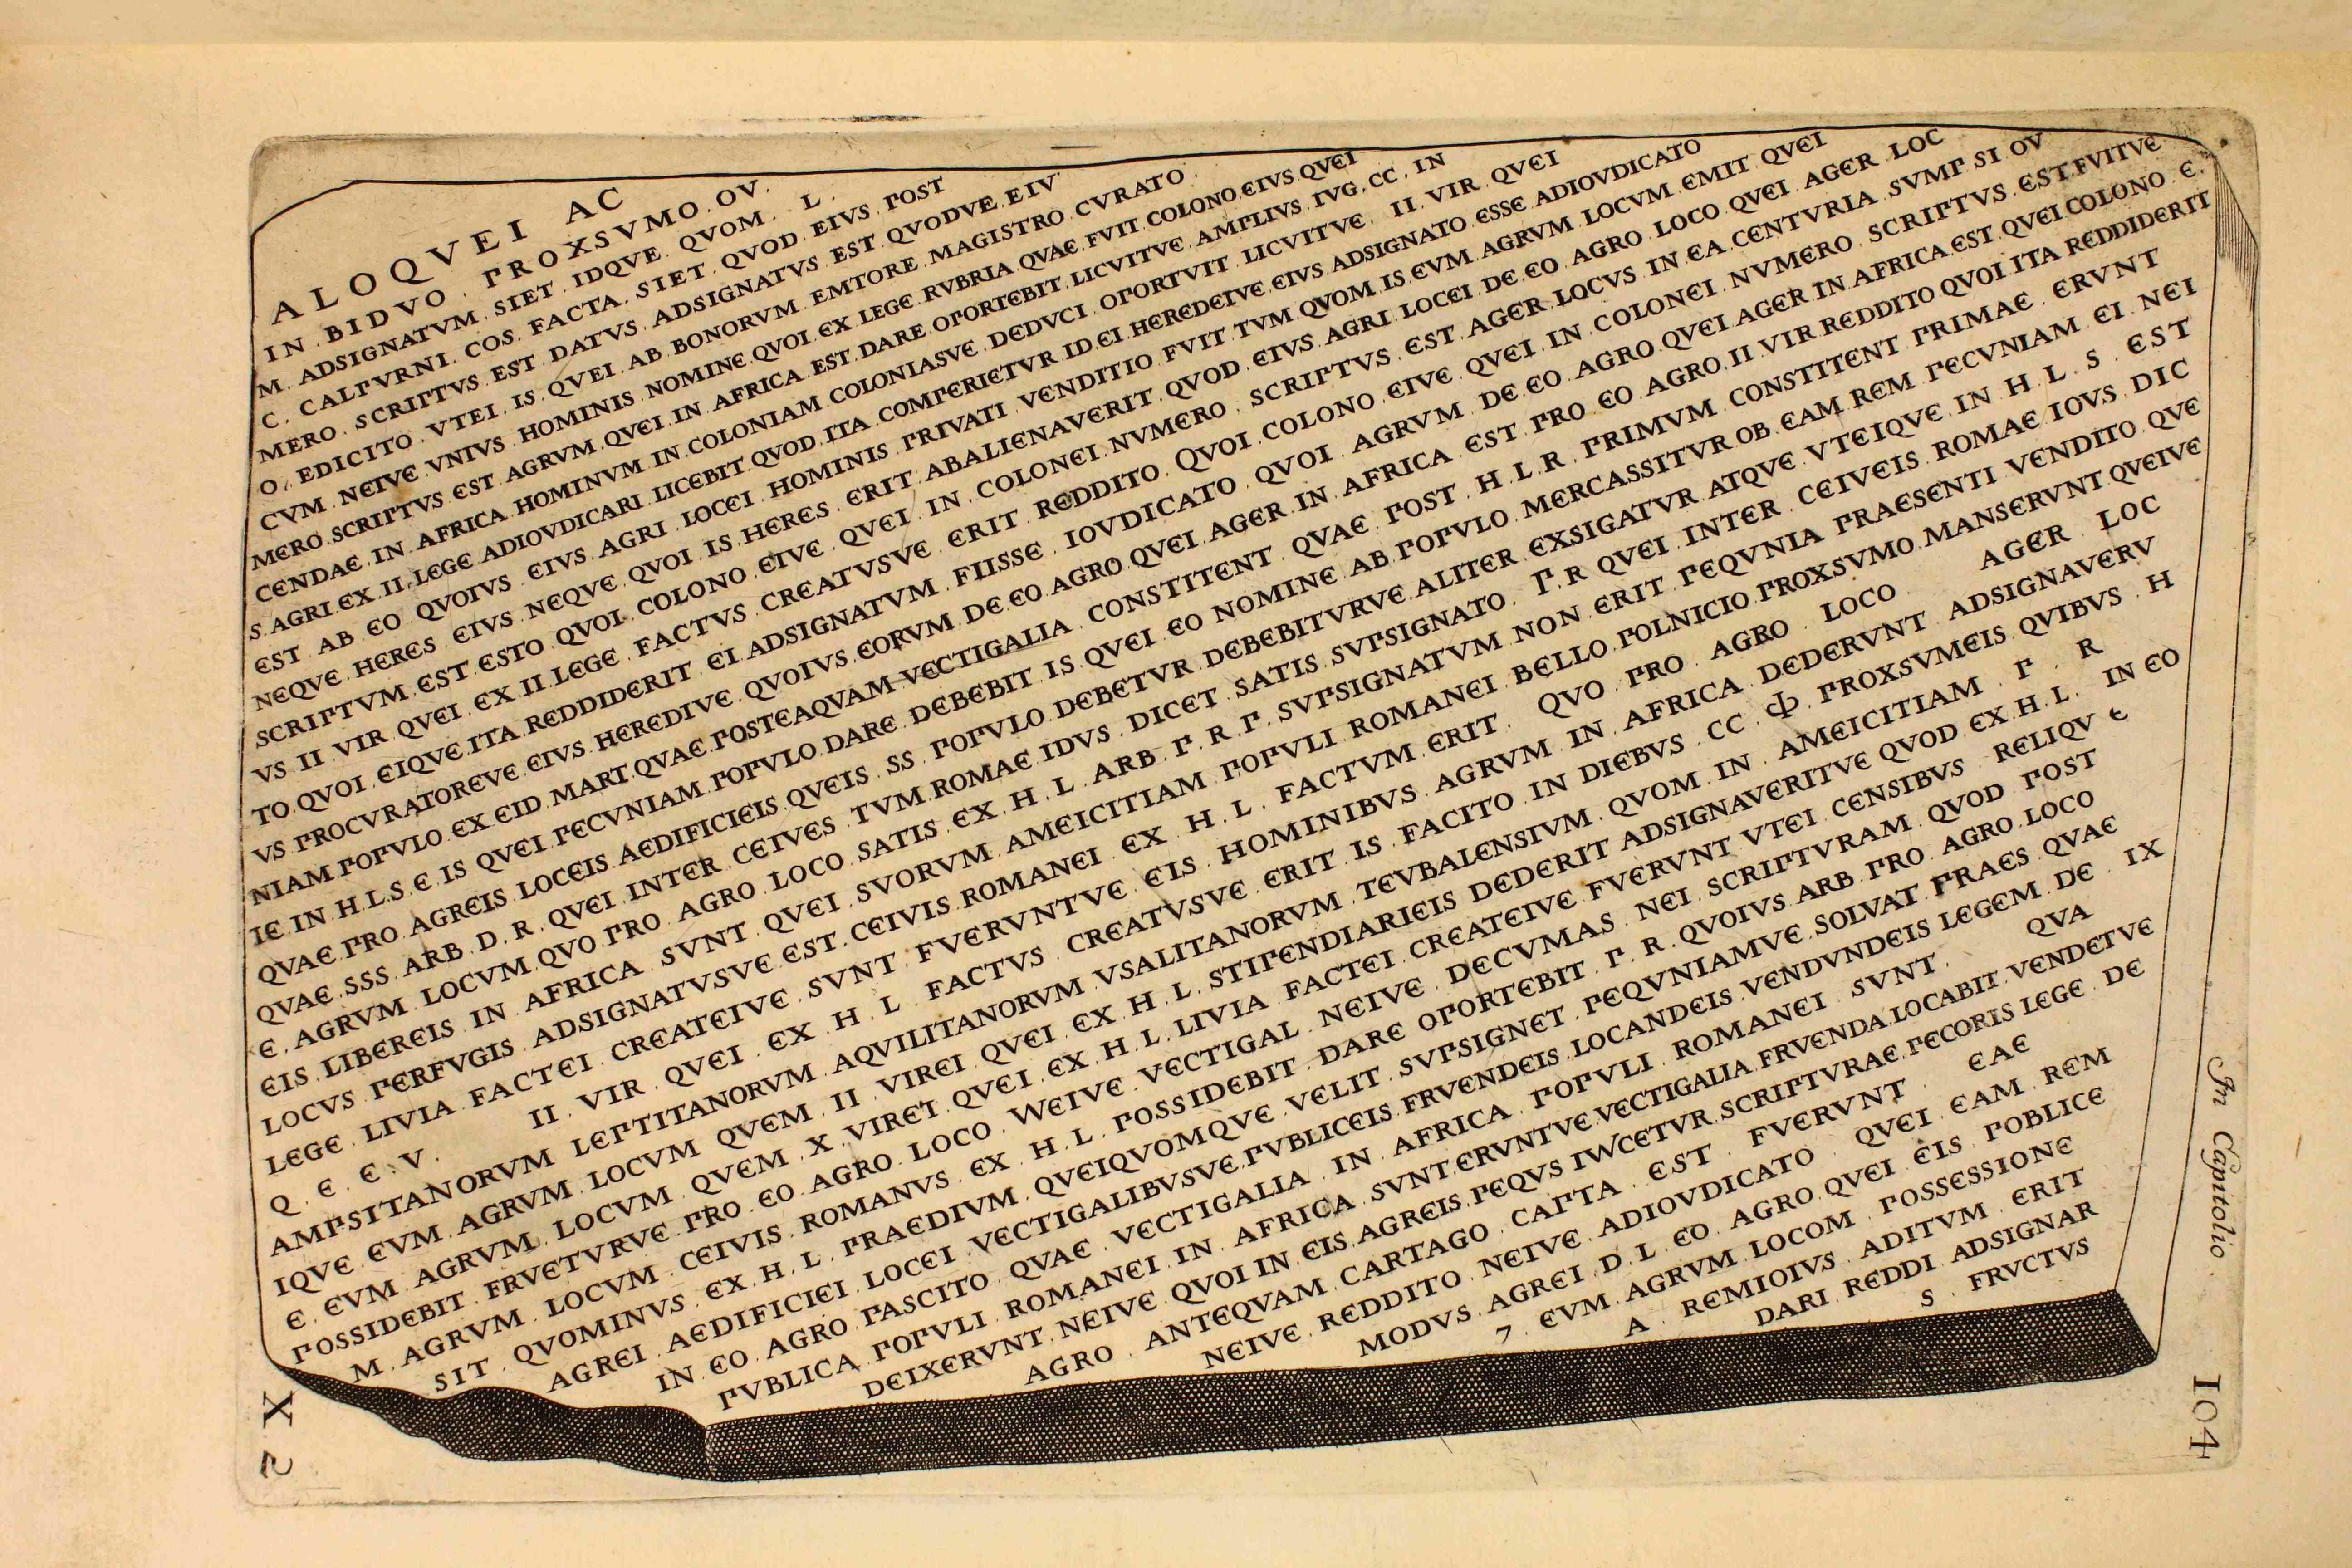 ALOQVEI AC
IN . BIDVO . PROXSVMO . OV.
M . ADSIGNATVM . SIET . IDQVE . QVOM . L .
C . CALPVRNI . COS . FACTA . SIET . QVOD . EIVS . POST
MERO . SCRIPTVS . EST . DATVS . ADSIGNATVS . EST . QVODVE . EIV
O . EDICITO . VTEI . IS . QVEI . AB . BONORVM . EMTORE . MAGISTRO . CVRATO .
CVM . NEIVE . VNIVS . HOMINIS . NOMINE . QVOI . EX . LEGE . RVBRIA . QVAE . FVIT . COLONO . EIVS . QVEI
MERO . SCRIPTVS . EST . AGRVM . QVEI . IN . AFRICA . EST . DARE . OPORTEBIT . LICVITVE . AMPLIVS . IVG . CC . IN
CENDAE . IN . AFRICA . HOMINVM . IN . COLONIAM . COLONIASVE . DEDVCI . OPORTVIT . LICVITVE . II . VIR . QVEI
S . AGRI . EX . II . LEGE . ADIOVDICARI . LICEBIT . QVOD . ITA . COMPERIETVR . ID . EI . HEREDEIVE . EIVS . ADSIGNATO . ESSE . ADIOVDICATO
EST . AB . EO . QVOIVS . EIVS . AGRI . LOCEI . HOMINIS . PRIVATI . VENDITIO . FVIT . TVM . QVOM . IS . EVM . AGRVM . LOCVM . EMIT . QVEI
NEQVE . HERES . EIVS . NEQVE . QVOI . IS . HERES . ERIT . ABALIENAVERIT . QVOD . EIVS . AGRI . LOCEI . DE . EO . AGRO . LOCO . QVEI . AGER . LOC
SCRIPTVM . EST . ESTO . QVOI . COLONO . EIVE . QVEI . IN . COLONEI . NVMERO . SCRIPTVS . EST . AGER . LOCVS . IN . EA . CENTVRIA . SVMP . SI . OV
VS . II . VIR . QVEI . EX . II . LEGE . FACTVS . CREATVSVE . ERIT . REDDITO . QVOI . COLONO . EIVE . QVEI . IN . COLONEI . NVMERO . SCRIPTVS . EST . FVITVE
TO . QVOI . EIQVE . ITA . REDDIDERIT . EI . ADSIGNATVM . FIISSE . IOVDICATO . QVOI . AGRVM . DE . EO . AGRO . QVEI . AGER . IN . AFRICA . EST . QVEI . COLONO . E .
VS . PROCVRATOREVE . EIVS . HEREDIVE . QVOIVS . EORVM . DE . EO . AGRO . QVEI . AGER . IN . AFRICA . EST . PRO . EO . AGRO . II . VIR . REDDITO . QVOI . ITA . REDDIDERIT
NIAM . POPVLO . EX . EID . MART . QVAE . POSTEAQVAM . VECTIGALIA . CONSTITENT . QVAE . POST . H . L . R . PRIMVM . CONSTITENT . PRIMAE . ERVNT
IE . IN . H . L . S . E . IS . QVEI . PECVNIAM . POPVLO . DARE . DEBEBIT . IS . QVEI . EO . NOMINE . AB . POPVLO . MERCASSITVR . OB . EAM . REM . PECVNIAM . EI . NEI
QVAE . PRO . AGREIS . LOCEIS . AEDIFICIEIS . QVEIS . SS . POPVLO . DEBETVR . DEBEBITVRVE . ALITER . EXSIGATVR . ATQVE . VTEIQVE . IN . H . L . S . EST
QVAE . SSS . ARB . D . R . QVEI . INTER . CEIVES . TVM . ROMAE . IDVS . DICET . SATIS . SVPSIGNATO . P . R . QVEI . INTER . CEIVEIS . ROMAE . IOVS . DIC
E . AGRVM . LOCVM . QVO . PRO . AGRO . LOCO . SATIS . EX . H . L . ARB . P . R . P . SVPSIGNATVM . NON . ERIT . PEQVNIA . PRAESENTI . VENDITO . QVE
EIS . LIBEREIS . IN . AFRICA . SVNT . QVEI . SVORVM . AMEICITIAM . POPVLI . ROMANEI . BELLO . POLNICIO . PROXSVMO . MANSERVNT . QVEIVE
LOCVS . PERFVGIS . ADSIGNATVSVE . EST . CEIVIS . ROMANEI . EX . H . L . FACTVM . ERIT . QVO . PRO . AGRO . LOCO . AGER . LOC
LEGE . LIVIA . FACTEI . CREATEIVE . SVNT . FVERVNTVE . EIS . HOMINIBVS . AGRVM . IN . AFRICA . DEDERVNT . ADSIGNAVERV
Q . E . E . V . II . VIR . QVEI . EX . H . L . FACTVS . CREATVSVE . ERIT . IS . FACITO . IN . DIEBVS . CC . ↀ . PROXSVMEIS . QVIBVS . H
AMPSITANORVM . LEPTITANORVM . AQVILITANORVM . VSALITANORVM . TEVBALENSIVM . QVOM . IN . AMEICITIAM . P . R
IQVE . EVM . AGRVM . LOCVM . QVEM . II . VIREI . QVEI . EX . H . L . STIPENDIARIEIS . DEDERIT . ADSIGNAVERITVE . QVOD . EX . H . L . IN . EO
E . EVM . AGRVM . LOCVM . QVEM . X . VIREI . QVEI . EX . H . L . LIVIA . FACTEI . CREATEIVE . FVERVNT . VTEI . CENSIBVS . RELIQV E
POSSIDEBIT . FRVETVRVE . PRO . EO . AGRO . LOCO . WEIVE . VECTIGAL . NEIVE . DECVMAS . NEI . SCRIPTVRAM . QVOD . POST
M . AGRVM . LOCVM . CEIVIS . ROMANVS . EX . H . L . POSSIDEBIT . DARE . OPORTEBIT . P . R . QVOIVS . ARB . PRO . AGRO . LOCO
SIT . QVOMINVS . EX . H . L . PRAEDIVM . QVEIQVOMQVE . VELIT . SVPSIGNET . PEQVNIAMVE . SOLVAT . PRAES . QVAE
AGREI . AEDIFICIEI . LOCEI . VECTIGALIBVSVE . PVBLICEIS . FRVENDEIS . LOCANDEIS . VENDVNDEIS . LEGEM . DE . IX
IN . EO . AGRO . PASCITO . QVAE . VECTIGALIA . IN . AFRICA . POPVLI . ROMANEI . SVNT . QVA
PVBLICA . POPVLI . ROMANEI . IN . AFRICA . SVNT . ERVNTVE . VECTIGALIA . FRVENDA . LOCABIT . VENDETVE
DEIXERVNT . NEIVE . QVOI . IN . EIS . AGREIS . PEQVS . IWCETVR . SCRIPTVRAE . PECORIS . LEGE . DE
AGRO . ANTEQVAM . CARTAGO . CAPTA . EST . FVERVNT . EAE
NEIVE . REDDITO . NEIVE . ADIOVDICATO . QVEI . EAM . REM
MODVS . AGREI . D . L . EO . AGRO . QVEI . EIS . POBLICE
7 . EVM . AGRVM . LOCOM . POSSESSIONE
A . REMIOIVS . ADITVM . ERIT
DARI . REDDI . ADSIGNAR
S . FRVCTVS
In Capitolio
X 2
104